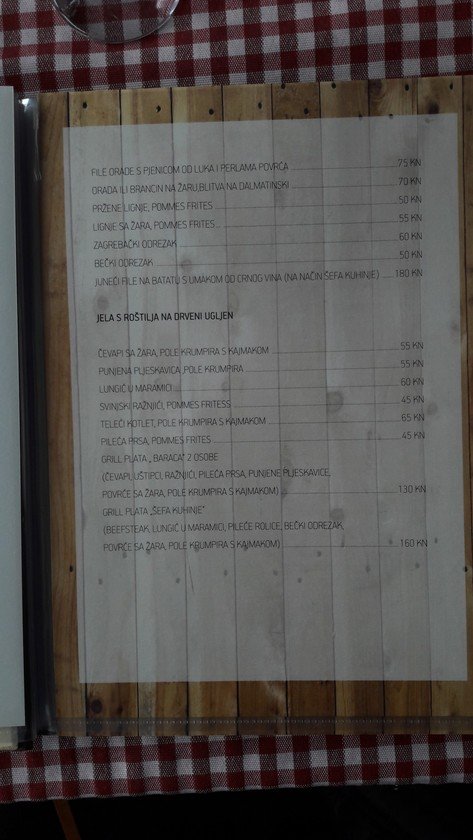 FILE ORADE S PJENICOM OD LUKA I PERLAMA POVRĆA 75 KN
ORADA ILI BRANCIN NA ŽARU,BLITVA NA DALMATINSKI 70 KN
PRŽENE LIGNJE, POMMES FRITES 50 KN
LIGNJE SA ŽARA, POMMES FRITES 55 KN
ZAGREBAČKI ODREZAK 60 KN
BEČKI ODREZAK 50 KN
JUNEĆI FILE NA BATATU S UMAKOM OD CRNOG VINA (NA NAČIN ŠEFA KUHINJE) 180 KN
JELA S ROŠTILJA NA DRVENI UGLJEN
ČEVAPI SA ŽARA, POLE KRUMPIRA S KAJMAKOM 55 KN
PUNJENA PLJESKAVICA ,POLE KRUMPIRA 55 KN
LUNGIĆ U MARAMICI 60 KN
SVINJSKI RAŽNJIĆI, POMMES FRITESS 45 KN
TELEĆI KOTLET, POLE KRUMPIRA S KAJMAKOM 65 KN
PILEĆA PRSA, POMMES FRITES 45 KN
GRILL PLATA „ BARAĆA" 2 OSOBE
(ČEVAPI,UŠTIPCI, RAŽNJIĆI, PILEĆA PRSA, PUNJENE PLJESKAVICE,
POVRĆE SA ŽARA, POLE KRUMPIRA S KAJMAKOM) 130 KN
GRILL PLATA „ŠEFA KUHINJE"
(BEEFSTEAK, LUNGIĆ U MARAMICI, PILEĆE ROLICE, BEČKI ODREZAK,
POVRĆE SA ŽARA, POLE KRUMPIRA S KAJMAKOM) 160 KN